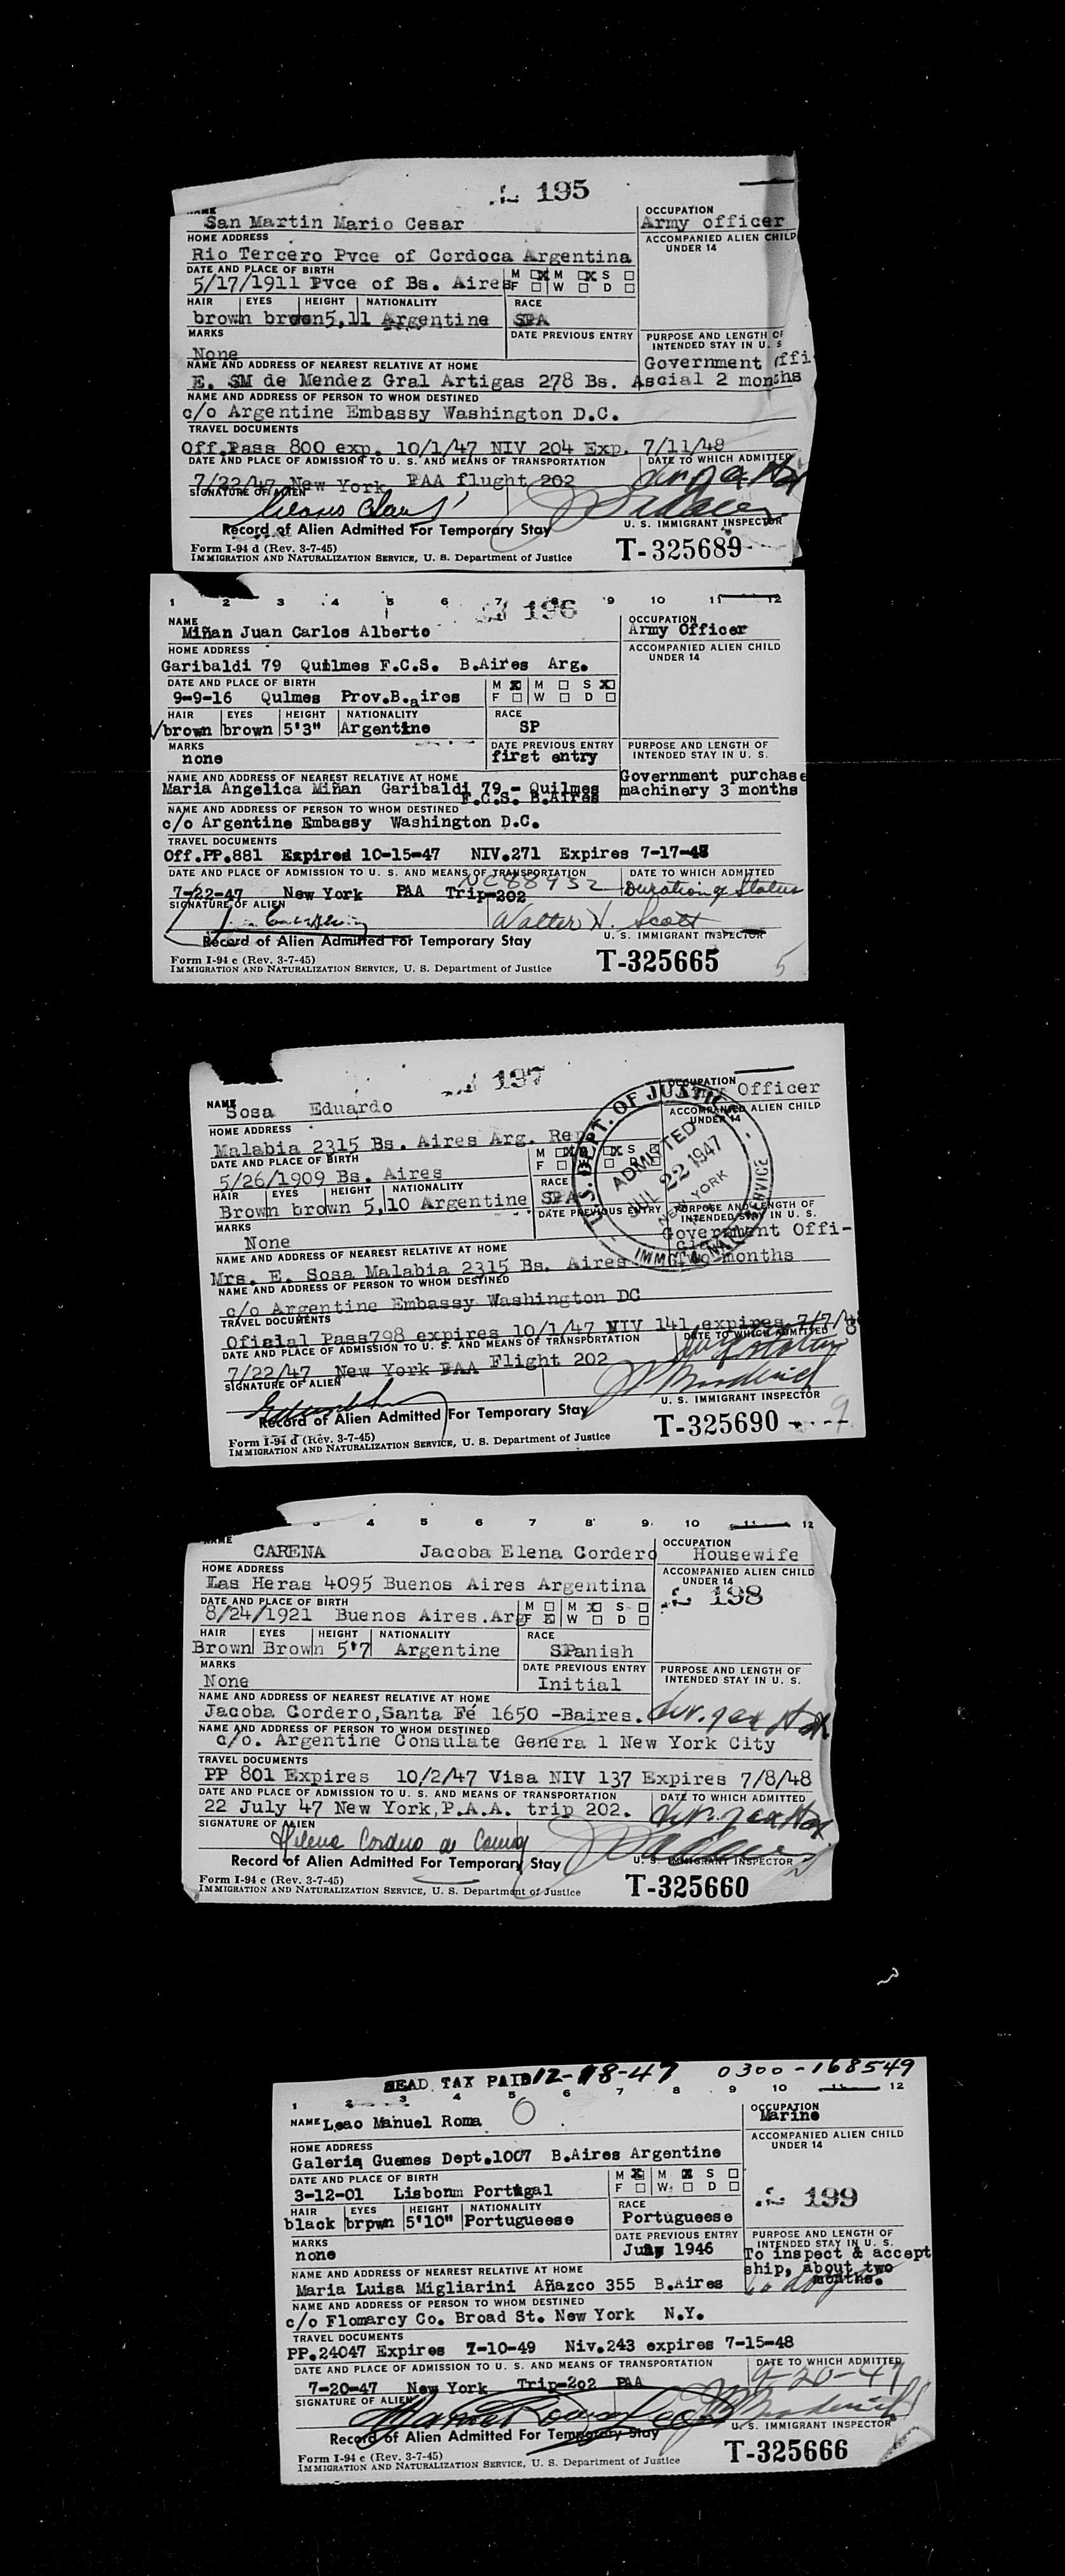 195
NAME OCCUPATION
San Martin Mario Cesar Army officer
HOME ADDRESS ACCOMPANIED ALIEN CHILD
UNDER 14
Rio Tercero Pvce of Cordoca Argentina
DATE AND PLACE OF BIRTH M M S
5/17/1911 Pvce of Bs. Aires F W D
HAIR EYES HEIGHT NATIONALITY RACE
brown brown 5,11 Argentine SPA
MARKS DATE PREVIOUS ENTRY PURPOSE AND LENGTH OF
INTENDED STAY IN U. S
None
NAME AND ADDRESS OF NEAREST RELATIVE AT HOME Government Offi
E. SM de Mendez Gral Artigas 278 Bs. Ascial 2 months
NAME AND ADDRESS OF PERSON TO WHOM DESTINED
c/o Argentine Embassy Washington D.C.
TRAVEL DOCUMENTS
Off.Pass 800 exp. 10/1/47 NIV 204 Exp. 7/11/48
DATE AND PLACE OF ADMISSION TO U. S. AND MEANS OF TRANSPORTATION DATE TO WHICH ADMITTED
7/22/47 New York PAA flught 202
SIGNATURE OF ALIEN
Record of Alien Admitted For Temporary Stay U. S. IMMIGRANT INSPECTOR
Form I-94 d (Rev. 3-7-45)
IMMIGRATION AND NATURALIZATION SERVICE, U. S. Department of Justice T-325689
1 2 3 4 5 6 7 8 9 10 11 12
196
NAME OCCUPATION
Miñan Juan Carlos Alberto Army Officer
HOME ADDRESS ACCOMPANIED ALIEN CHILD
UNDER 14
Garibaldi 79 Quilmes F.C.S. B.Aires Arg.
DATE AND PLACE OF BIRTH M M S
9-9-16 Qulmes Prov.B.aires F W D
HAIR EYES HEIGHT NATIONALITY RACE
brown brown 5'3" Argentine SP
MARKS DATE PREVIOUS ENTRY PURPOSE AND LENGTH OF
INTENDED STAY IN U. S.
none first entry
NAME AND ADDRESS OF NEAREST RELATIVE AT HOME Government purchase
Maria Angelica Miñan Garibaldi 79 - Quilmes machinery 3 months
F.C.S. B.Aires
NAME AND ADDRESS OF PERSON TO WHOM DESTINED
c/o Argentine Embassy Washington D.C.
TRAVEL DOCUMENTS
Off.PP.881 Expired 10-15-47 NIV.271 Expires 7-17-48
DATE AND PLACE OF ADMISSION TO U. S. AND MEANS OF TRANSPORTATION DATE TO WHICH ADMITTED
NC88932 Duration of Status
7-22-47 New York PAA Trip-202
SIGNATURE OF ALIEN
Walter H. Scott
Record of Alien Admitted For Temporary Stay U. S. IMMIGRANT INSPECTOR
Form I-94 c (Rev. 3-7-45)
IMMIGRATION AND NATURALIZATION SERVICE, U. S. Department of Justice T-325665 5
197
NAME OCCUPATION
Sosa Eduardo Officer
HOME ADDRESS ACCOMPANIED ALIEN CHILD
UNDER 14
Malabia 2315 Bs. Aires Arg. Rep
DATE AND PLACE OF BIRTH M S
5/26/1909 Bs. Aires F D
HAIR EYES HEIGHT NATIONALITY RACE
Brown brown 5,10 Argentine SPA
U.S. DEPT. OF JUSTICE
ADMITTED
JUL 22 1947
NEW YORK
IMMIG. & NAT. SERVICE
MARKS DATE PREVIOUS ENTRY PURPOSE AND LENGTH OF
INTENDED STAY IN U. S.
None Government Offi-
cial
NAME AND ADDRESS OF NEAREST RELATIVE AT HOME
Mrs. E. Sosa Malabia 2315 Bs. Aires two months
NAME AND ADDRESS OF PERSON TO WHOM DESTINED
c/o Argentine Embassy Washington DC
TRAVEL DOCUMENTS
Oficial Pass798 expires 10/1/47 NIV 141 expires 7/7/48
DATE AND PLACE OF ADMISSION TO U. S. AND MEANS OF TRANSPORTATION DATE TO WHICH ADMITTED
7/22/47 New York PAA Flight 202
SIGNATURE OF ALIEN
U. S. IMMIGRANT INSPECTOR
Record of Alien Admitted For Temporary Stay
Form I-94 d (Rev. 3-7-45)
IMMIGRATION AND NATURALIZATION SERVICE, U. S. Department of Justice T-325690 9
3 4 5 6 7 8 9 10 11 12
NAME OCCUPATION
CARENA Jacoba Elena Cordero Housewife
HOME ADDRESS ACCOMPANIED ALIEN CHILD
UNDER 14
Las Heras 4095 Buenos Aires Argentina 198
DATE AND PLACE OF BIRTH M M S
8/24/1921 Buenos Aires.Arg F W D
HAIR EYES HEIGHT NATIONALITY RACE
Brown Brown 5'7 Argentine SPanish
MARKS DATE PREVIOUS ENTRY PURPOSE AND LENGTH OF
INTENDED STAY IN U. S.
None Initial
NAME AND ADDRESS OF NEAREST RELATIVE AT HOME
Jacoba Cordero,Santa Fé 1650 -Baires.
NAME AND ADDRESS OF PERSON TO WHOM DESTINED
c/o. Argentine Consulate Genera l New York City
TRAVEL DOCUMENTS
PP 801 Expires 10/2/47 Visa NIV 137 Expires 7/8/48
DATE AND PLACE OF ADMISSION TO U. S. AND MEANS OF TRANSPORTATION DATE TO WHICH ADMITTED
22 July 47 New York,P.A.A. trip 202.
SIGNATURE OF ALIEN
Record of Alien Admitted For Temporary Stay U. S. IMMIGRANT INSPECTOR
Form I-94 c (Rev. 3-7-45)
IMMIGRATION AND NATURALIZATION SERVICE, U. S. Department of Justice T-325660
HEAD TAX PAID 12-18-47 0300-168549
1 2 3 4 5 6 7 8 9 10 12
NAME Leao Manuel Roma OCCUPATION
Marine
HOME ADDRESS ACCOMPANIED ALIEN CHILD
UNDER 14
Galeria Guemes Dept.1007 B.Aires Argentine
DATE AND PLACE OF BIRTH M M S
3-12-01 Lisbonm Portugal F W D
199
HAIR EYES HEIGHT NATIONALITY RACE
black brpwn 5'10" Portugueese Portugueese
MARKS DATE PREVIOUS ENTRY PURPOSE AND LENGTH OF
INTENDED STAY IN U. S.
none July 1946 To inspect & accept
NAME AND ADDRESS OF NEAREST RELATIVE AT HOME ship, about two
months.
Maria Luisa Migliarini Añazco 355 B.Aires
NAME AND ADDRESS OF PERSON TO WHOM DESTINED
c/o Flomarcy Co. Broad St. New York N.Y.
TRAVEL DOCUMENTS
PP.24047 Expires 7-10-49 Niv.243 expires 7-15-48
DATE AND PLACE OF ADMISSION TO U. S. AND MEANS OF TRANSPORTATION DATE TO WHICH ADMITTED
9-20-47
7-20-47 New York Trip-2o2 PAA
SIGNATURE OF ALIEN
Record of Alien Admitted For Temporary Stay U. S. IMMIGRANT INSPECTOR
Form I-94 c (Rev. 3-7-45)
IMMIGRATION AND NATURALIZATION SERVICE, U. S. Department of Justice T-325666